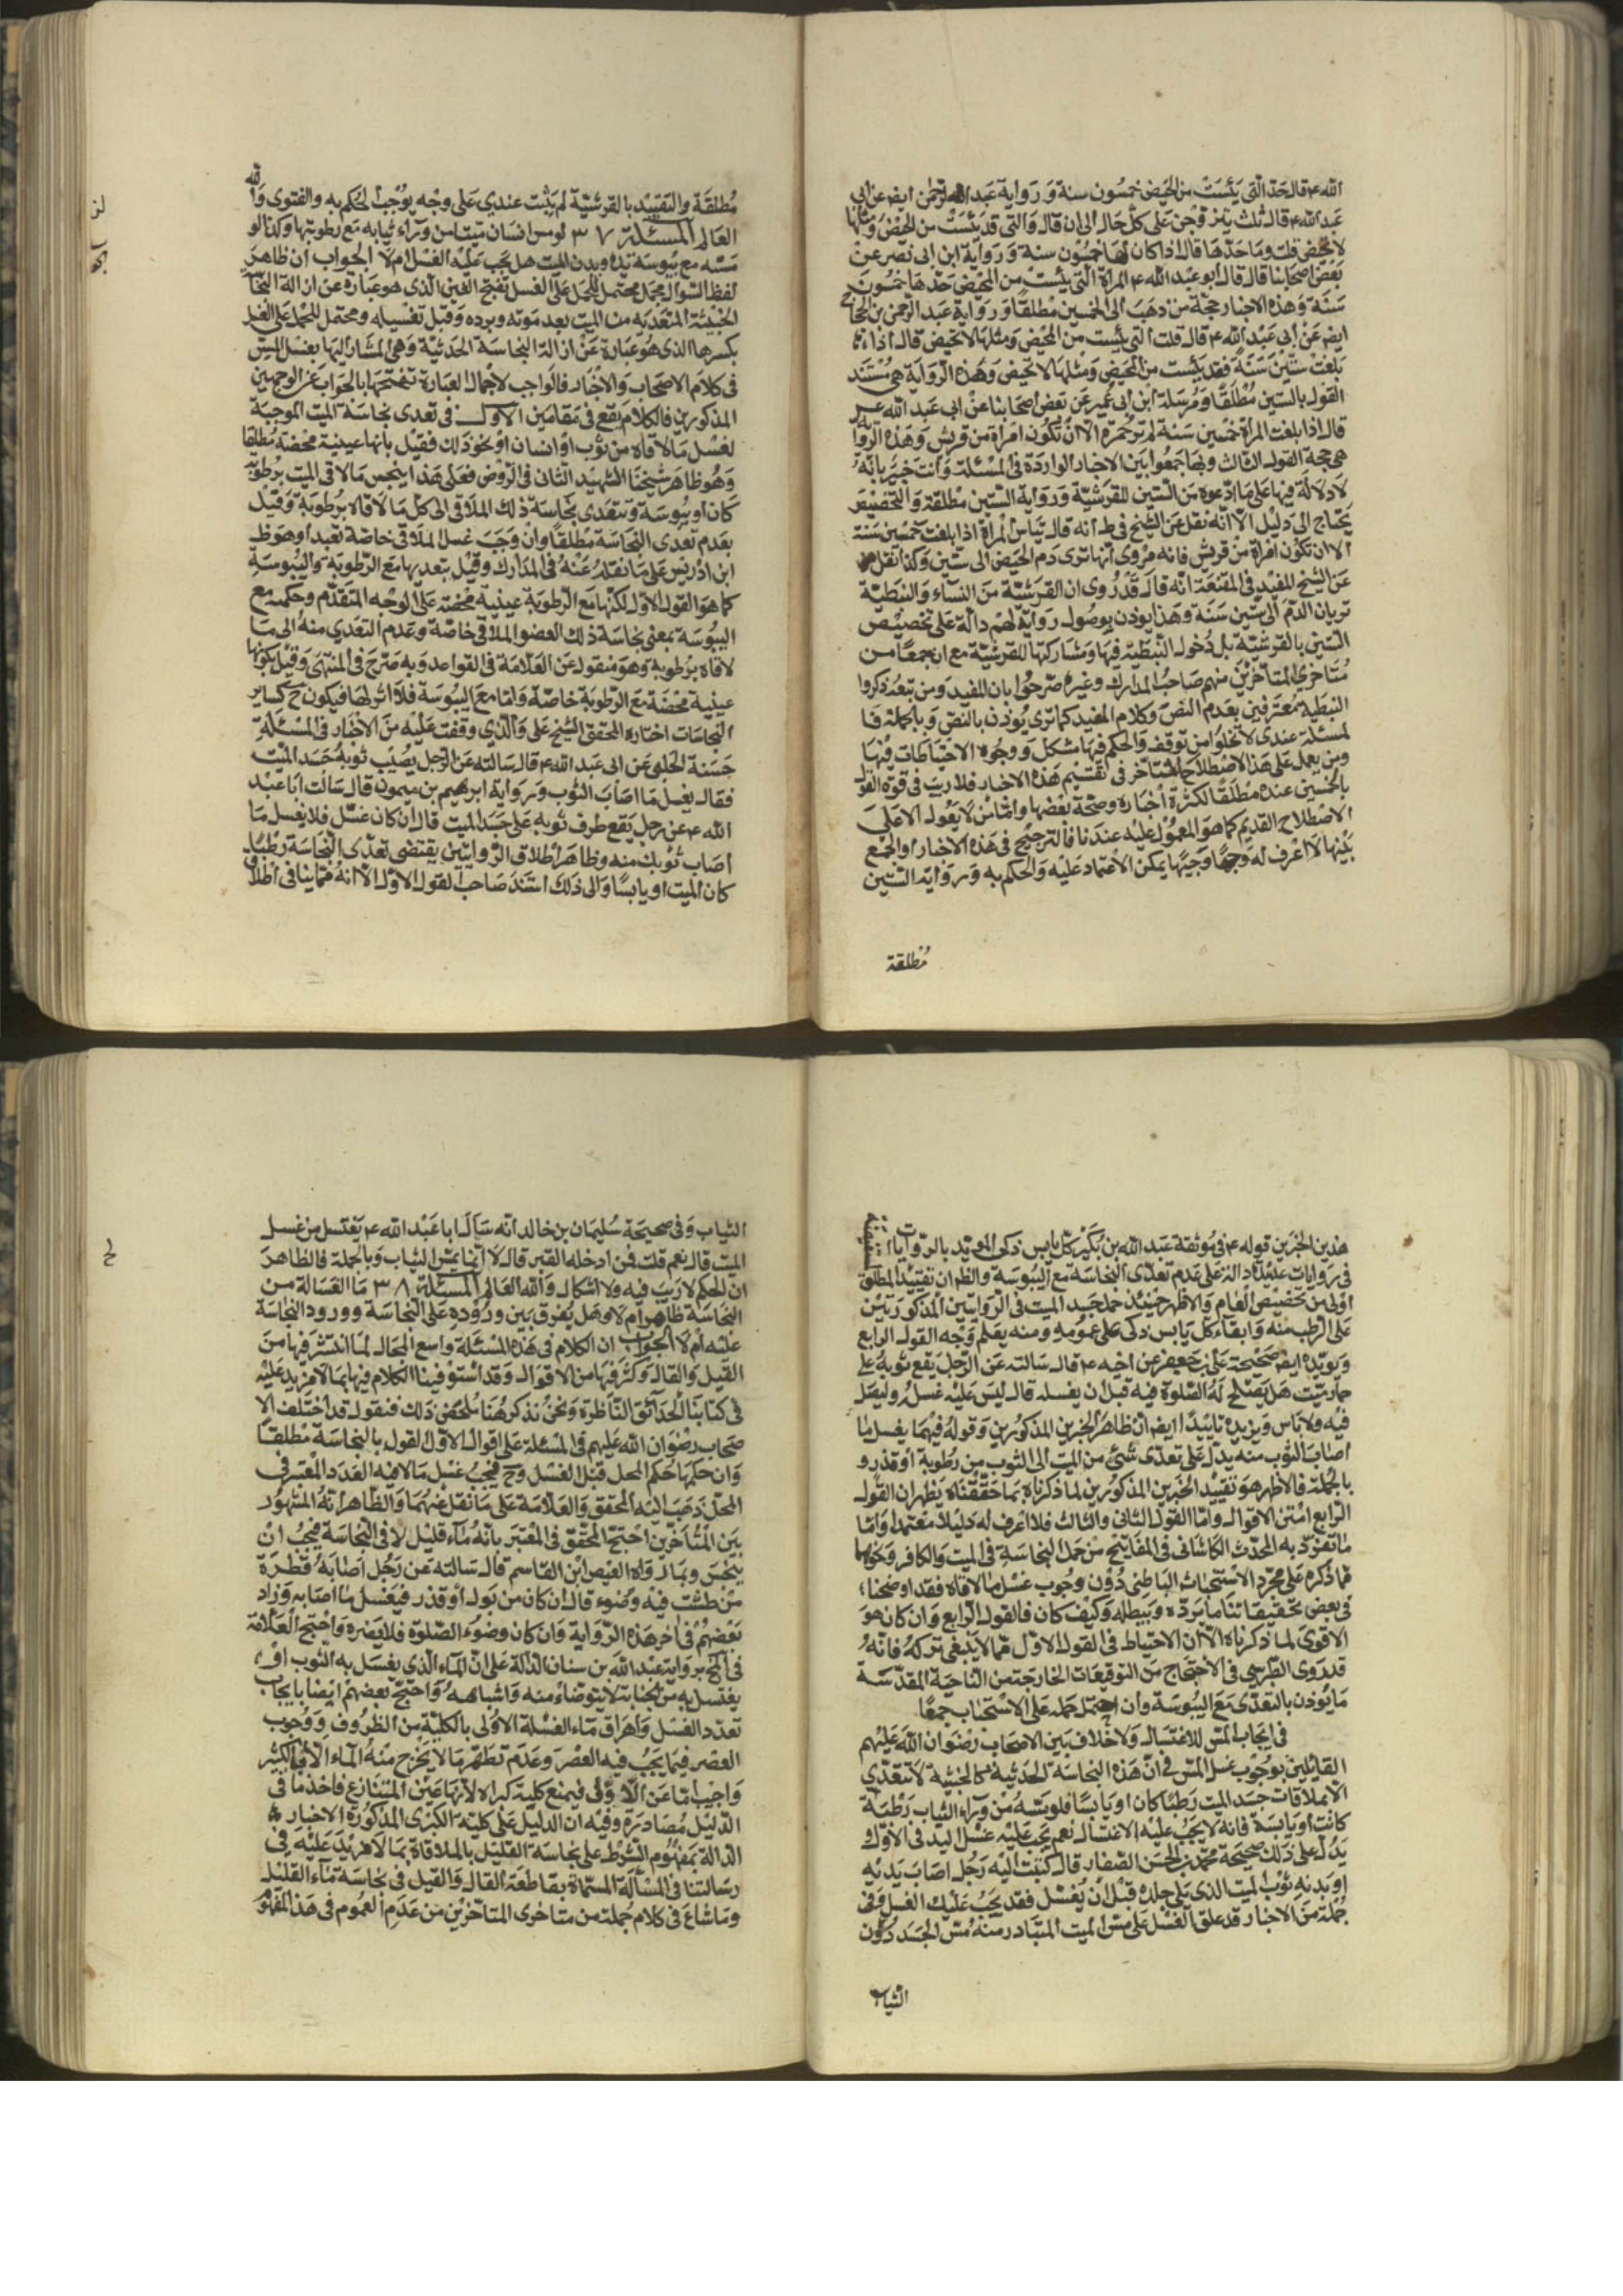 الله ع قال حدّ التى يئست من الحيض خمسون سنة و رواية عبد الرحمن ايض عن ابى
عبد الله ع قال ثلث يتزوجن على كلّ حال الى ان قال والتى قد يئست من المحيض ومثلها
لا تحيض قلت وما حدّها قال اذا كان لها خمسون سنة و رواية ابن ابى نصر عن
بعض اصحابنا قال قال ابو عبد الله ع المرأة التى يئست من المحيض حدّها خمسون
سنة وهذه الاخبار حجة من ذهب الى الخمسين مطلقا و رواية عبد الرحمن بن الحجاج
ايض عن ابى عبد الله ع قال قلت التى يئست من المحيض ومثلها لا تحيض قال اذا
بلغت ستّين سنة فقد يئست من المحيض ومثلها لا تحيض وهذه الرّواية هى مستند
القول بالستين مطلقا ومرسلة ابن ابى عمير عن بعض اصحابنا عن ابى عبد الله ع
قال اذا بلغت المرأة خمسين سنة لم تر حمرة الّا ان تكون امرأة من قريش وهذه الرواية
هى حجة القول الثالث وبها جمعوا بين الاخبار الواردة فى المسئلة وانت خبير بانّه
لا دلالة فيها على ما ادّعوه من الستين للقرشيّة و رواية الستين مطلقة والتخصيص
يحتاج الى دليل الّا انّه نقل عن الشيخ فى ط انه قال تيأس المرأة اذا بلغت خمسين سنة
الا ان تكون امرأة من قريش فانه مروى انها ترى دم الحيض الى ستين وكذا نقل
عن الشيخ المفيد فى المقنعة انّه قال قد روى ان القرشيّة من النساء والنبطيّة
تريان الدّم الى ستين سنة وهذا يوذن بوصول رواية لهم دالّة على تخصيص
الستين بالقرشيّة بل دخول النبطيّة فيها ومشاركتها للقرشيّة مع ان جمعا من
متاخرى المتاخرين منهم صاحب المدارك وغيره صرحوا بان المفيد ومن تبعه ذكروا
النبطية معترفين بعدم النصّ وكلام المفيد كما ترى يوذن بالنص وبالجملة فا
لمسئلة عندى لا تخلوا من توقف والحكم فيها مشكل و وجوه الاحتياطات فيها
ومن يعمل على هذا الاصطلاح المتاخر فى تقسيم هذه الاخبار فلا ريب فى قوة القول
بالخمسين عنده مطلقا لكثرة اخباره وصحّة بعضها وامّا من لا يعول الا على
الاصطلاح القديم كما هو المعمول عليه عندنا فالترجيح فى هذه الاخبار او الجمع
بينها لا اعرف له وجها وجيها يمكن الاعتماد عليه والحكم به و رواية الستين
مطلقة
مطلقة والتقييد بالقرشيّة لم يثبت عندى على وجه يوجب الحكم به والفتوى والله
العالم المسئلة ٣٧ لو مس انسان ميتا من وراء ثيابه مع رطوبتها وكذا لو
مسّه مع يبوسة يده وبدن الميت هل يجب عليه الغسل ام لا الجواب ان ظاهر
لفظ السّوال مجمل محتمل للحمل على الغسل بفتح الغين الّذى هو عبارة عن ازالة النجاسة
الخبيثة المتعدية من الميت بعد موته وبرده وقبل تغسيله ومحتمل للحمل على الغسل
بكسرها الذى هو عبارة عن ازالة النجاسة الحدثية وهى المشار اليها بغسل المسّ
فى كلام الاصحاب والاخبار فالواجب لاجمال العبارة تنقيحها بالجواب عن الوجهين
المذكورين فالكلام يقع فى مقامين الاول فى تعدى نجاسة الميت الموجبة
لغسل ما لاقاه من ثوب او انسان او نحو ذلك فقيل بانها عينية محضة مطلقا
وهو ظاهر شيخنا الشهيد الثانى فى الروض فعلى هذا ينجس ما لاقى الميت برطوبة
كان او يبوسة وتتعدى نجاسة ذلك الملاقى الى كل ما لاقاه برطوبة وقيل
بعدم تعدّى النجاسة مطلقا وان وجب غسل الملاقى خاصّة تعبدا وهو ظ
ابن ادريس على ما نقله عنه فى المدارك وقيل بتعديها مع الرّطوبة واليبوسة
كما هو القول الاوّل لكنّها مع الرّطوبة عينية محضة على الوجه المتقدّم وحكمية مع
اليبوسة بمعنى نجاسة ذلك العضو الملاقى خاصّة وعدم التعدى منه الى ما
لاقاه برطوبة وهو منقول عن العلّامة فى القواعد وبه صرّح فى المنتهى وقيل بكونها
عينية محضة مع الرّطوبة خاصّة وامّا مع اليبوسة فلا اثر لها فيكون ح كساير
النجاسات اختاره المحقق الشيخ على والذى وقفت عليه من الاخبار فى المسئلة
حسنة الحلبى عن ابى عبد الله ع قال سالته عن الرّجل يصيب ثوبه جسد الميّت
فقال يغسل ما اصاب الثوب و رواية ابرهيم بن ميمون قال سالت ابا عبد
الله ع عن رجل يقع طرف ثوبه على جسد الميت قال ان كان غسّل فلا يغسل ما
اصاب ثوبك منه وظاهر اطلاق الرّوايتين يقتضى تعدّى النجاسة رطبا
كان الميت او يابسا والى ذلك استند صاحب القول الاوّل الا انّه مما ينافى اطلاق
لز
هذين الخبرين قوله ع فى موثقة عبد الله بن بكير كلّ يابس ذكى المويّد بالرّوايات
فى روايات عديدة دالة على عدم تعدّى النجاسة مع اليبوسة والظ ان تقييد المطلق
اولى من تخصيص العام والاظهر حينئذ حمل جسد الميت فى الرّوايتين المذكورتين
على الرطب منه وابقاء كلّ يابس ذكى على عمومه ومنه يعلم وجه القول الرابع
ويويّده ايض صحيحة على بن جعفر عن اخيه ع قال سالته عن الرّجل يقع ثوبه على
حمار ميّت هل يصلح له الصّلوة فيه قبل ان يغسله قال ليس عليه غسله وليصل
فيه ولا باس ويزيده تاييدا ايض ان ظاهر الخبرين المذكورين وقوله فيهما يغسل ما
اصاب الثوب منه يدل على تعدّى شىء من الميت الى الثوب من رطوبة او قذر و
بالجملة فالاظهر هو تقييد الخبرين المذكورين لما ذكرناه بما حقّقناه يظهر ان القول
الرّابع امتن الاقوال وامّا القول الثانى والثالث فلا اعرف له دليلا معتمدا وامّا
ما تفرّد به المحدّث الكاشانى فى المفاتيح من حمل النجاسة فى الميت والكافر ونحوهما
مما ذكره على مجرّد الاستحباب الباطنى دون وجوب غسل ما لاقاه فقد اوضحنا
فى بعض تحقيقاتنا ما يردّه ويبطله وكيف كان فالقول الرّابع وان كان هو
الاقوى لما ذكرناه الّا ان الاحتياط فى القول الاوّل ممّا لا ينبغى تركه فانّه
قد روى الطّبرسى فى الاحتجاج من التوقيعات الخارجة من الناحية المقدّسة
ما يوذن بالتعدّى مع اليبوسة وان احتمل حمله على الاستحباب جمعا
فى ايجاب المسّ للاغتسال ولا خلاف بين الاصحاب رضوان الله عليهم
القايلين بوجوب غسل المسّ فى انّ هذه النجاسة الحدثية كالخبثية لا تتعدّى
الا بملاقات جسد الميت رطبا كان او يابسا فلو مسّه من وراء الثياب رطبة
كانت او يابسة فانه لا يجب عليه الاغتسال نعم يجب عليه غسل اليد فى الاوّل و
يدلّ على ذلك صحيحة محمّد بن الحسن الصّفار قال كتبت اليه رجل اصاب يديه
او بدنه ثوب الميت الذى يلى جلده قبل ان يغسّل فقد يجب عليك الغسل وفى
جملة من الاخبار قد علق الغسل على مسّ الميت المتبادر منه مسّ الجسد دون
الثياب
الثياب وفى صحيحة سليمان بن خالد انّه سأل ابا عبد الله ع يغتسل من غسل
الميت قال نعم قلت فمن ادخله القبر قال لا انّما يمسّ الثياب وبالجملة فالظاهر
ان الحكم لا ريب فيه ولا اشكال والله العالم المسئلة ٣٨ ما الغسالة من
النجاسة طاهر ام لا وهل يفرق بين وروده على النجاسة و ورود النجاسة
عليه ام لا الجواب ان الكلام فى هذه المسئلة واسع المجال لما انتشر فيها من
القيل والقال وكثر فيها من الاقوال وقد استوفينا الكلام فيها بما لا مزيد عليه
فى كتابنا الحدائق النّاظرة ونحن نذكر هنا ملخّص ذلك فنقول قد اختلف الا
صحاب رضوان الله عليهم فى المسئلة على اقوال الاوّل القول بالنجاسة مطلقا
وان حكمها حكم المحل قبل الغسل وح فيجب غسل ما لاقته العدد المعتبر فى
المحلّ ذهب اليه المحقق والعلّامة على ما نقل عنهما والظاهر انه المشهور
بين المتاخّرين احتجّ المحقّق فى المعتبر بانّه ماء قليل لاقى النجاسة فيجب ان
ينجس وبما رواه العيص ابن القاسم قال سالته عن رجل اصابه قطرة
من طشت فيه وضوء قال ان كان من بول او قذر فيغسل ما اصابه وزاد
بعضهم فى اخر هذه الرّواية وان كان وضوء الصّلوة فلا يضره واحتج العلّامة
برواية عبد الله بن سنان الدّالة على انّ الماء الّذى يغسل به الثوب او
يغتسل به من الجنابة لا يتوضّاء منه واشباهه واحتجّ بعضهم ايضا بايجاب
تعدّد الغسل واهراق ماء الغسلة الاولى بالكليّة من الظروف و وجوب
العصر فيما يجب فيه العصر وعدم تطهّر ما لا يخرج منه الماء الا بالكثير
واجيب امّا عن الاوّل فبمنع كلية كبراه لانها عين المتنازع فاخذها فى
الدّليل مصادرة وفيه ان الدليل على كلية الكبرى المذكورة الاخبار
الدّالة بمفهوم الشرط على نجاسة القليل بالملاقاة بما لا مزيد عليه فى
رسالتنا فى المسألة المسمّاة بقاطعة القال والقيل فى نجاسة الماء القليل
وما شاع فى كلام جملة من متاخرى المتاخرين من عدم العموم فى هذا المفهوم
لح